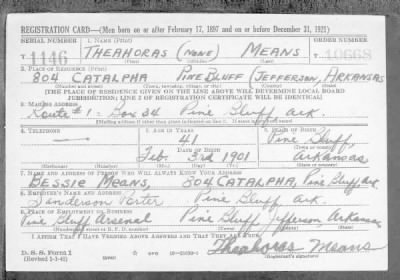 REGISTRATION CARD—(Men born on or after February 17, 1897 and on or before December 31, 1921)
SERIAL NUMBER 1. NAME (Print) ORDER NUMBER
T 1146 THEAHORAS (NONE) MEANS T 10668
(First) (Middle) (Last)
2. PLACE OF RESIDENCE (Print)
804 CATALPHA PINE BLUFF (JEFFERSON, ARKANSAS
(Number and street) (Town, township, village, or city) (County) (State)
[THE PLACE OF RESIDENCE GIVEN ON THE LINE ABOVE WILL DETERMINE LOCAL BOARD
JURISDICTION; LINE 2 OF REGISTRATION CERTIFICATE WILL BE IDENTICAL]
3. MAILING ADDRESS
Route #1. Box 34 Pine Bluff Ark.
[Mailing address if other than place indicated on line 2. If same insert word same]
4. TELEPHONE 5. AGE IN YEARS 6. PLACE OF BIRTH
41 Pine Bluff,
DATE OF BIRTH (Town or county)
Feb. 3rd 1901 Arkansas
(Exchange) (Number) (Mo.) (Day) (Yr.) (State or country)
7. NAME AND ADDRESS OF PERSON WHO WILL ALWAYS KNOW YOUR ADDRESS
BESSIE MEANS, 804 CATALPHA, Pine Bluff, Ark
8. EMPLOYER'S NAME AND ADDRESS
Sanderson Porter Pine Bluff.
9. PLACE OF EMPLOYMENT OR BUSINESS
Pine Bluff Arsenal Pine Bluff, Jefferson, Arkansas
(Number and street or R. F. D. number) (Town) (County) (State)
I AFFIRM THAT I HAVE VERIFIED ABOVE ANSWERS AND THAT THEY ARE TRUE.
D. S. S. Form 1 Theahoras Means
(Revised 1-1-42) (over) (Registrant's signature)